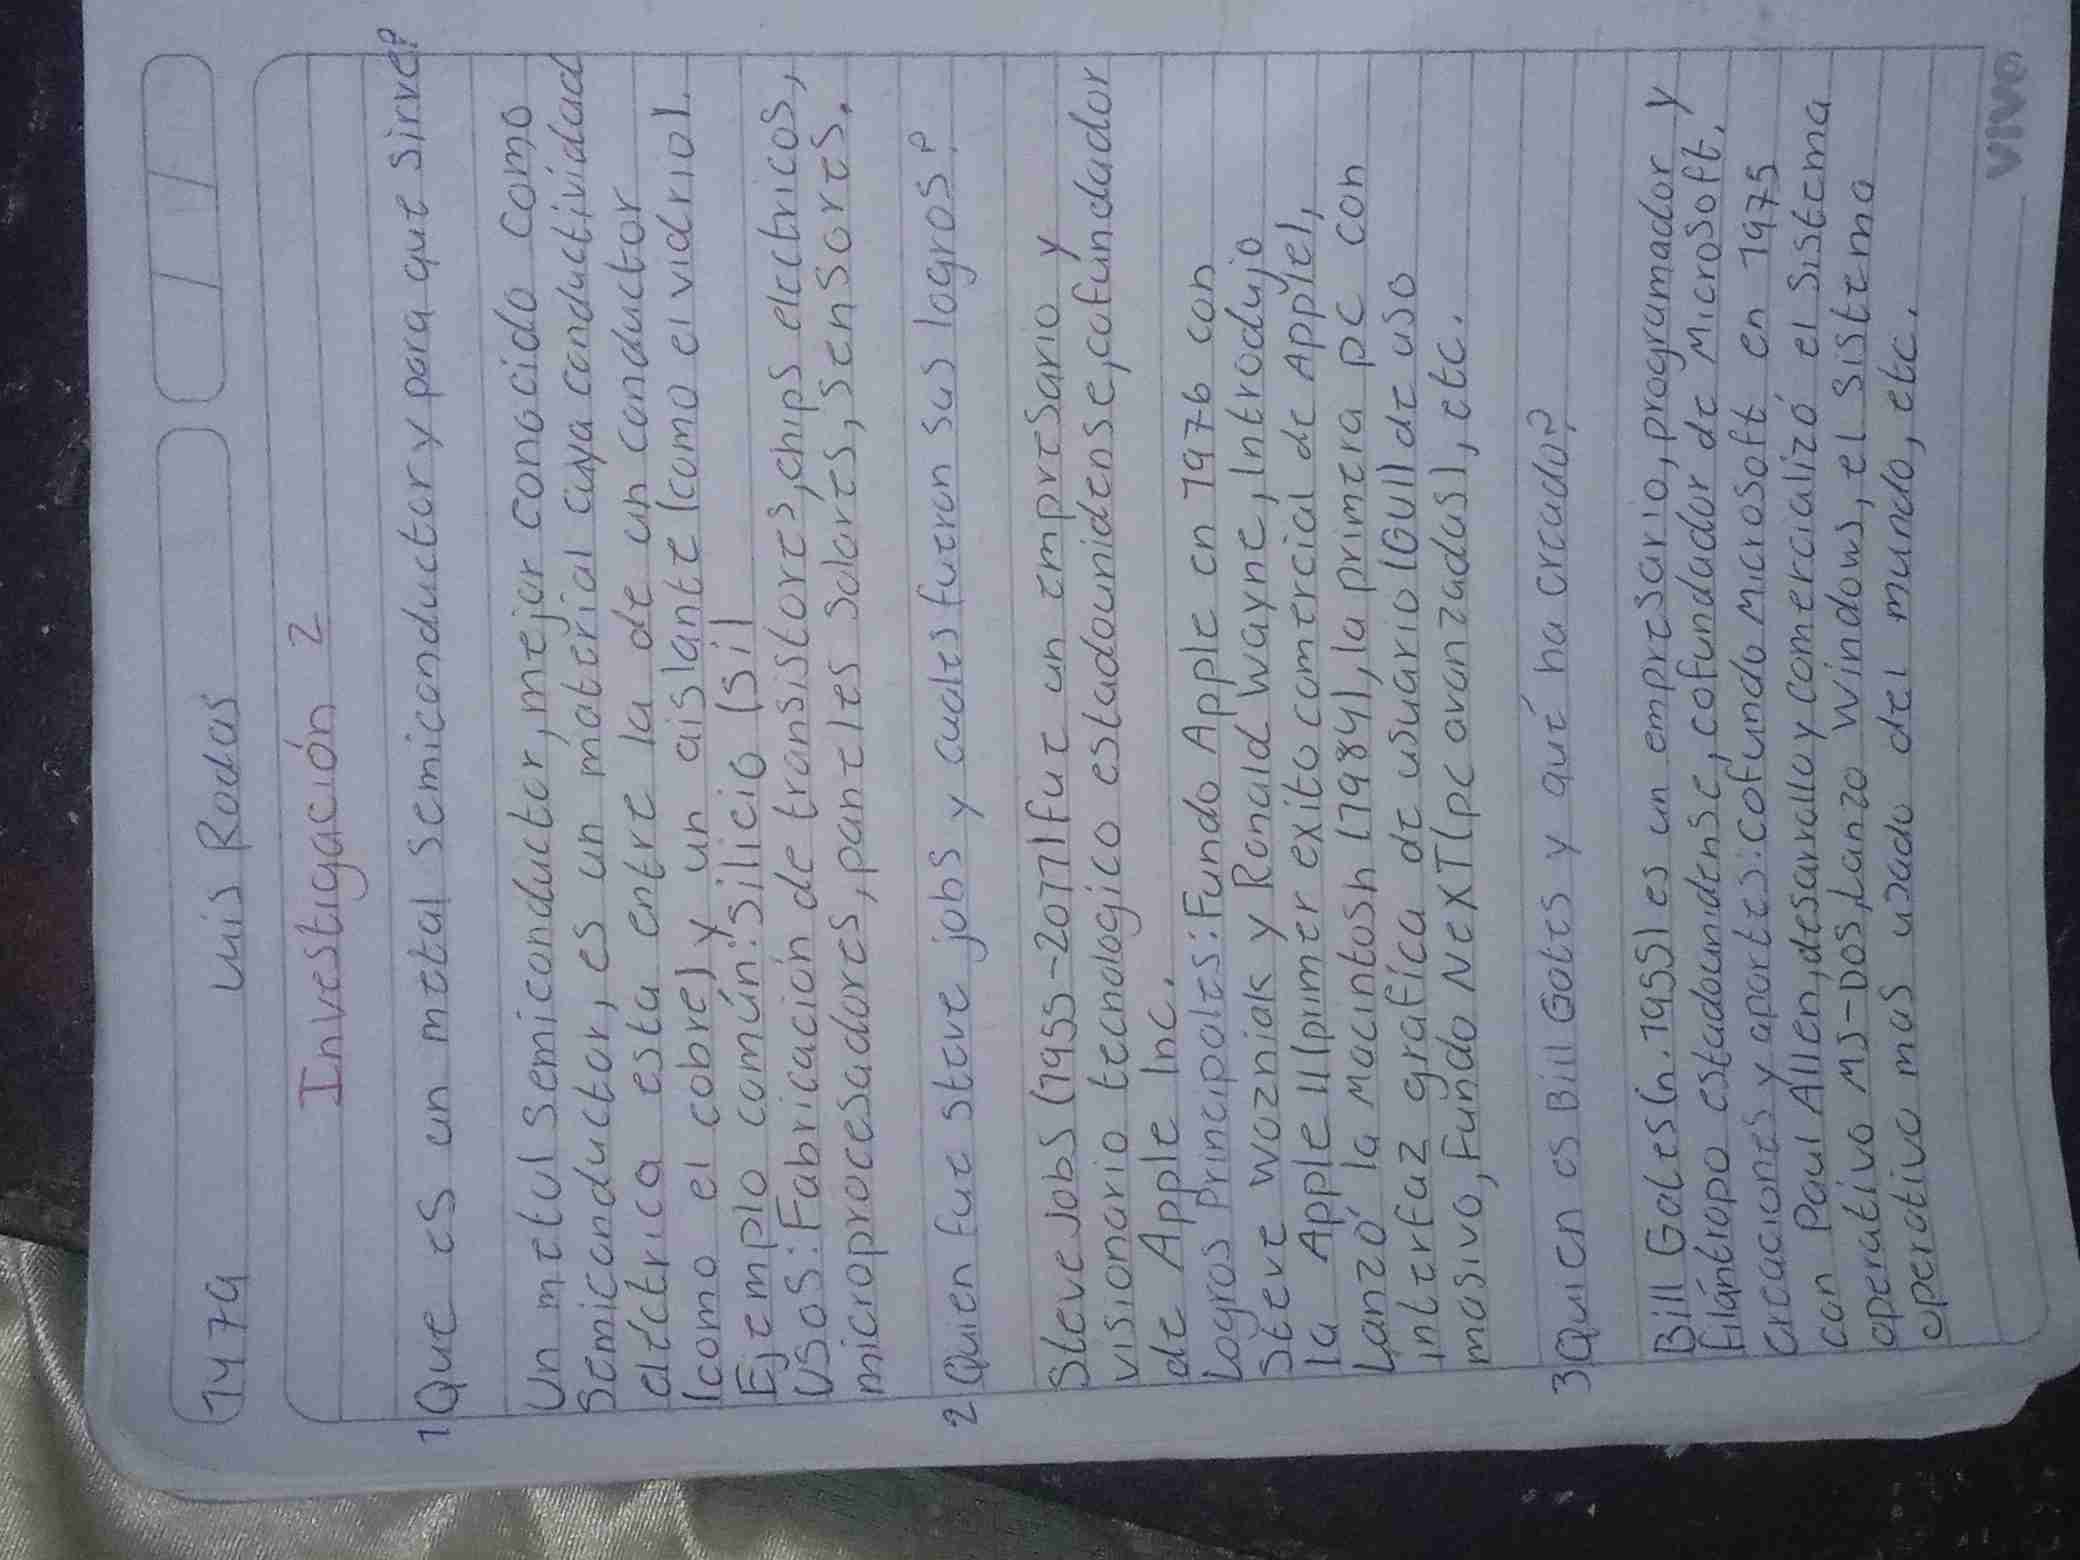 1479 Luis Rodas
Investigación 2
1 Que es un metal semiconductor y para que sirve?
Un metal semiconductor, mejor conocido como
semiconductor, es un material cuya conductividad
electrica esta entre la de un conductor
(como el cobre) y un aislante (como el vidrio).
Ejemplo común: silicio (si)
Usos: Fabricación de transistores, chips electricos,
microprocesadores, paneles solares, sensores.
2 Quien fue steve jobs y cuales fueron sus logros?
Steve Jobs (1955-2011) fue un empresario y
visionario tecnologico estadounidense, cofundador
de Apple Inc.
Logros principales: Fundo Apple en 1976 con
Steve Wozniak y Ronald Wayne, Introdujo
la Apple II (primer exito comercial de Apple),
Lanzó la Macintosh (1984), la primera pc con
interfaz grafica de usuario (GUI) de uso
masivo, Fundo NeXT (pc avanzadas), etc.
3 Quien es Bill Gates y qué ha creado?
Bill Gates (n. 1955) es un empresario, programador y
filántropo estadounidense, cofundador de Microsoft.
Creaciones y aportes: cofundo Microsoft en 1975
con Paul Allen, desarrollo y comercializó el sistema
operativo MS-DOS, Lanzo Windows, el sistema
operativo mas usado del mundo, etc.
vivo